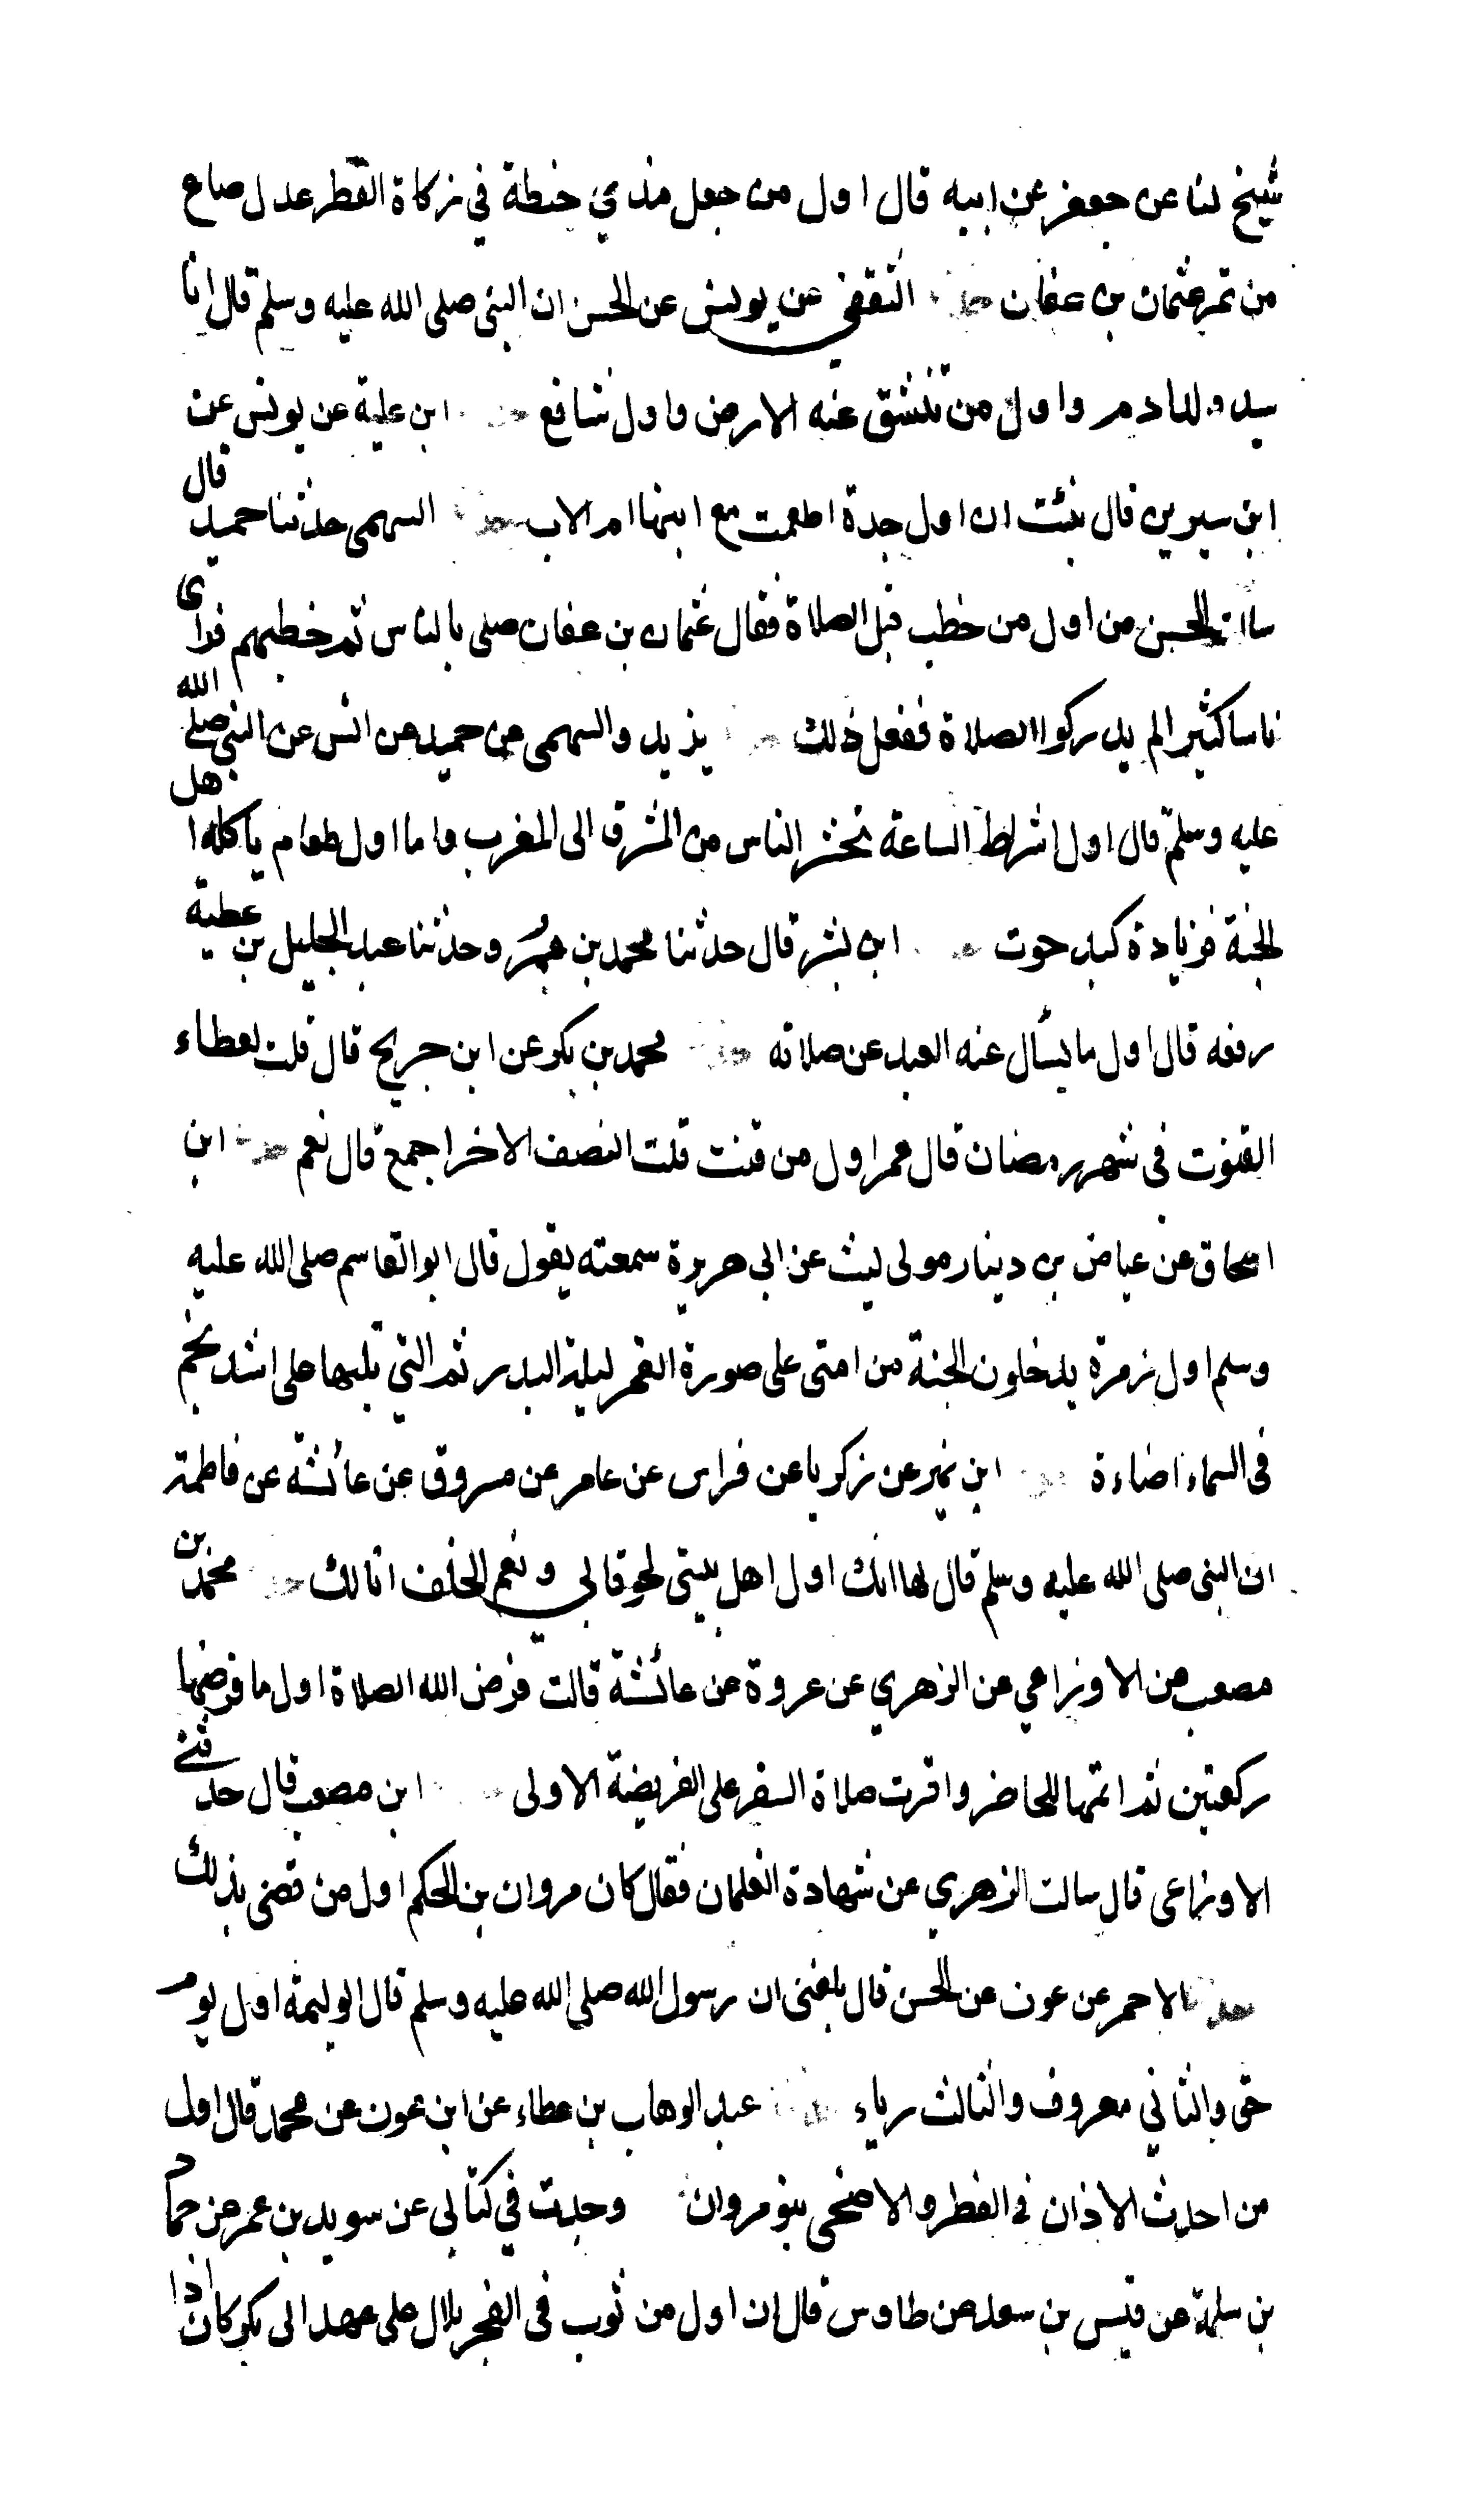 شيخ لنا عن جعفر عن ابيه قال اول من جعل مدي حنطة في زكاة الفطر عدل صاع
من تمر عثمان بن عفان حدثنا الثقفي عن يونس عن الحسن ان النبي صلى الله عليه وسلم قال انا
سيد ولد ادم واول من تنشق عنه الارض واول شافع ابن علية عن يونس عن
ابن سيرين قال نبئت ان اول جدة اطعمت مع ابنها ام الاب حدثنا السهمي حدثنا حميد قال
سالت الحسن من اول من خطب قبل الصلاة فقال عثمان بن عفان صلى بالناس ثم خطبهم فراى
ناسا كثيرا لم يدركوا الصلاة ففعل ذلك يزيد والسهمي عن حميد عن انس عن النبي صلى الله
عليه وسلم قال اول اشراط الساعة تحشر الناس من المشرق الى المغرب واما اول طعام ياكله اهل
الجنة فزيادة كبد حوت ابن بشر قال حدثنا محمد بن وحدثنا عبد الجليل بن عطية
رفعه قال اول ما يسأل عنه العبد عن صلاته محمد بن بكر عن ابن جريج قال قلت لعطاء
القنوت في شهر رمضان قال عمر اول من قنت قلت النصف الاخر اجمع قال نعم ابن
اسحاق عن عياض بن دينار مولى ليث عن ابي هريرة سمعته يقول قال ابو القاسم صلى الله عليه
وسلم اول زمرة يدخلون الجنة من امتى على صورة القمر ليلة البدر ثم التي تليها على اشد نجم
في السماء اضاءة ابن نمير عن زكريا عن فراس عن عامر عن مسروق عن عائشة عن فاطمة
ان النبي صلى الله عليه وسلم قال لها انك اول اهل بيتي لحوقا بي ونعم الخلف انا لك محمد بن
مصعب عن الاوزاعي عن الزهري عن عروة عن عائشة قالت فرض الله الصلاة اول ما فرضها
ركعتين ثم اتمها للحاضر واقرت صلاة السفر على الفريضة الاولى ابن مصعب قال حدثني
الاوزاعي قال سالت الزهري عن شهادة الغلمان فقال كان مروان بن الحكم اول من قضى بذلك
حدثنا الاحمر عن عون عن الحسن قال بلغني ان رسول الله صلى الله عليه وسلم قال الوليمة اول يوم
حق والثاني معروف والثالث رياء عبد الوهاب بن عطاء عن ابن عون عن محمد قال اول
من احدث الاذان في الفطر والاضحى بنو مروان وجدت في كتابي عن سويد بن عمر عن حماد
بن سلمة عن قيس بن سعد عن طاوس قال ان اول من ثوب في الفجر بلال على عهد ابي بكر كان اذا